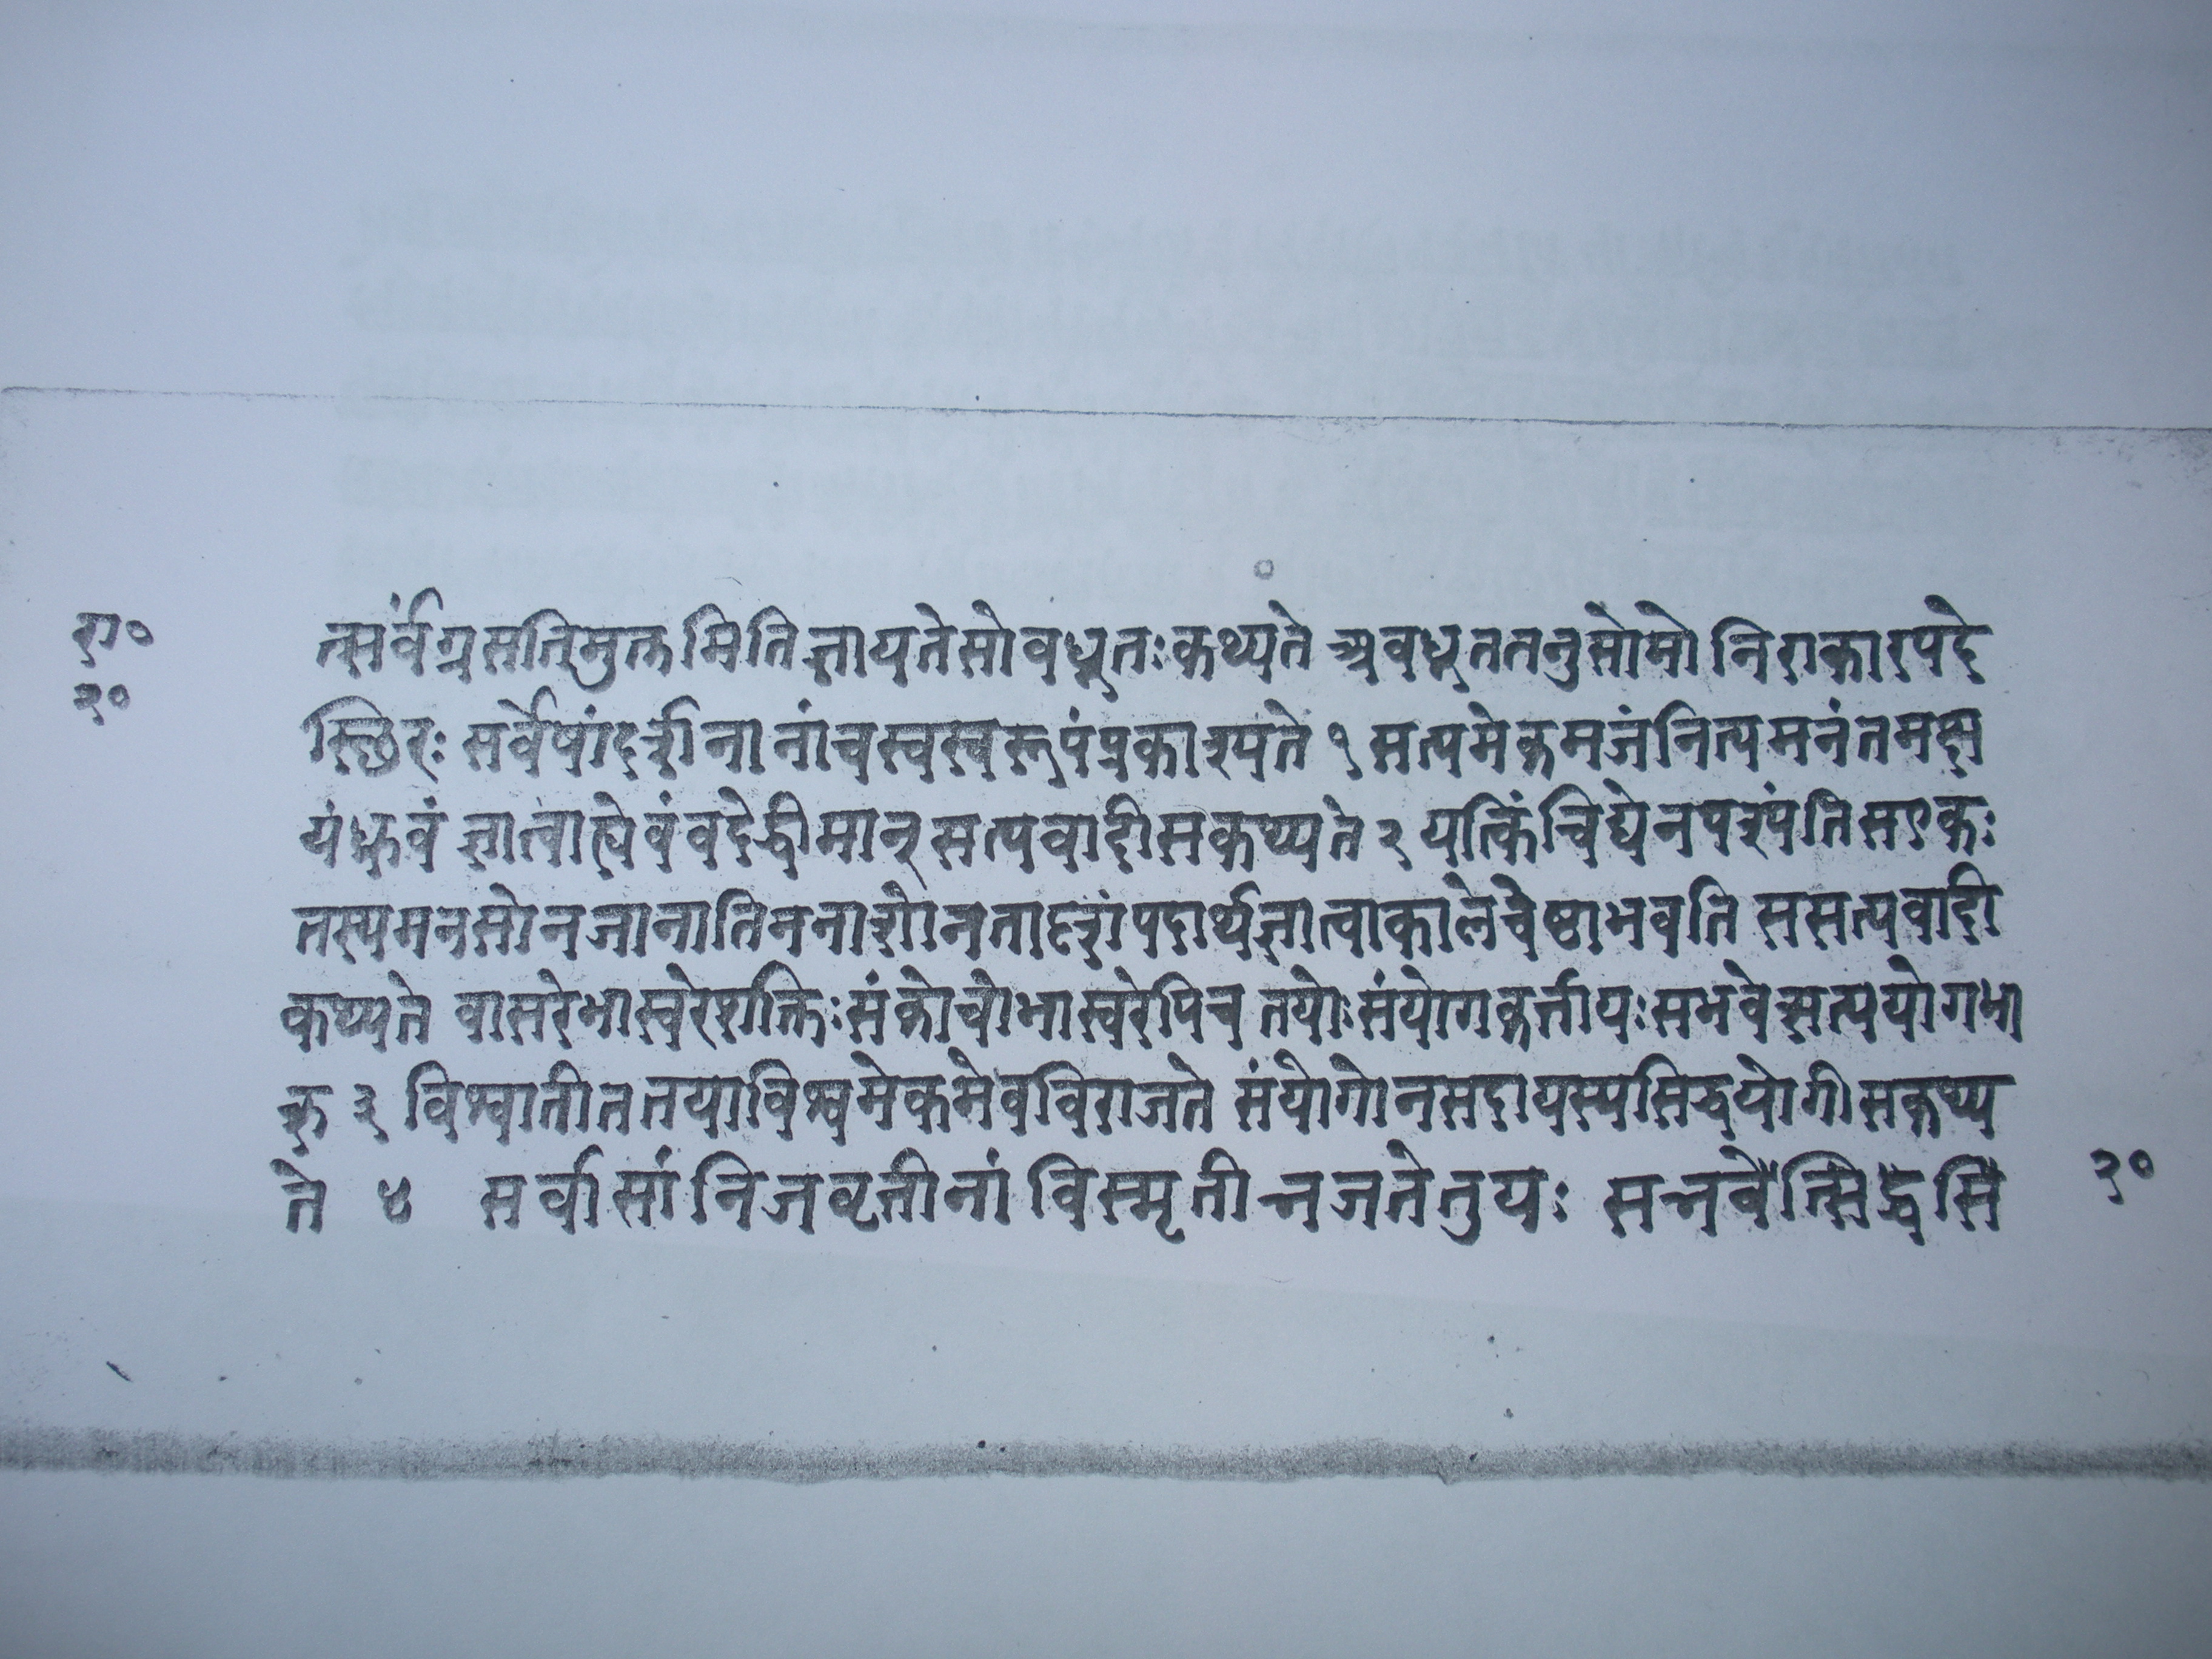 रा०
२०
त्सर्वंग्रसतिमुक्तमितिज्ञायतेसोवधूतःकथ्यते अवधूततनुसोमो निराकारपदे
स्छिरः सर्वेषांदर्शनानांचस्वस्वरूपंप्रकाश्यते १ सत्यमेकमजंनित्यमनंतमक्ष
यंध्रुवं ज्ञात्वाह्येवंवदेद्धीमान् सत्यवादीसकथ्यते २ यत्किंचिद्येनपश्यंतिसएकः
तस्यमनसोनजानातिननाशोनतादृशंपदार्थंज्ञात्वाकालेचेष्टाभवति ससत्यवादी
कथ्यते वासरेभास्वरेशक्तिःसंकोचोभास्वरेपिच तयोःसंयोगकर्त्तायःसभवेत्सत्ययोगभा
क् ३ विश्वातीततयाविश्वमेकमेवविराजते संयोगोनसदायस्यसिद्धयोगीसकथ्य
ते ४ सर्वासांनिजवृत्तीनांविस्मृतीन्नजतेतुयः सन्नवेत्सिद्धसि
२०